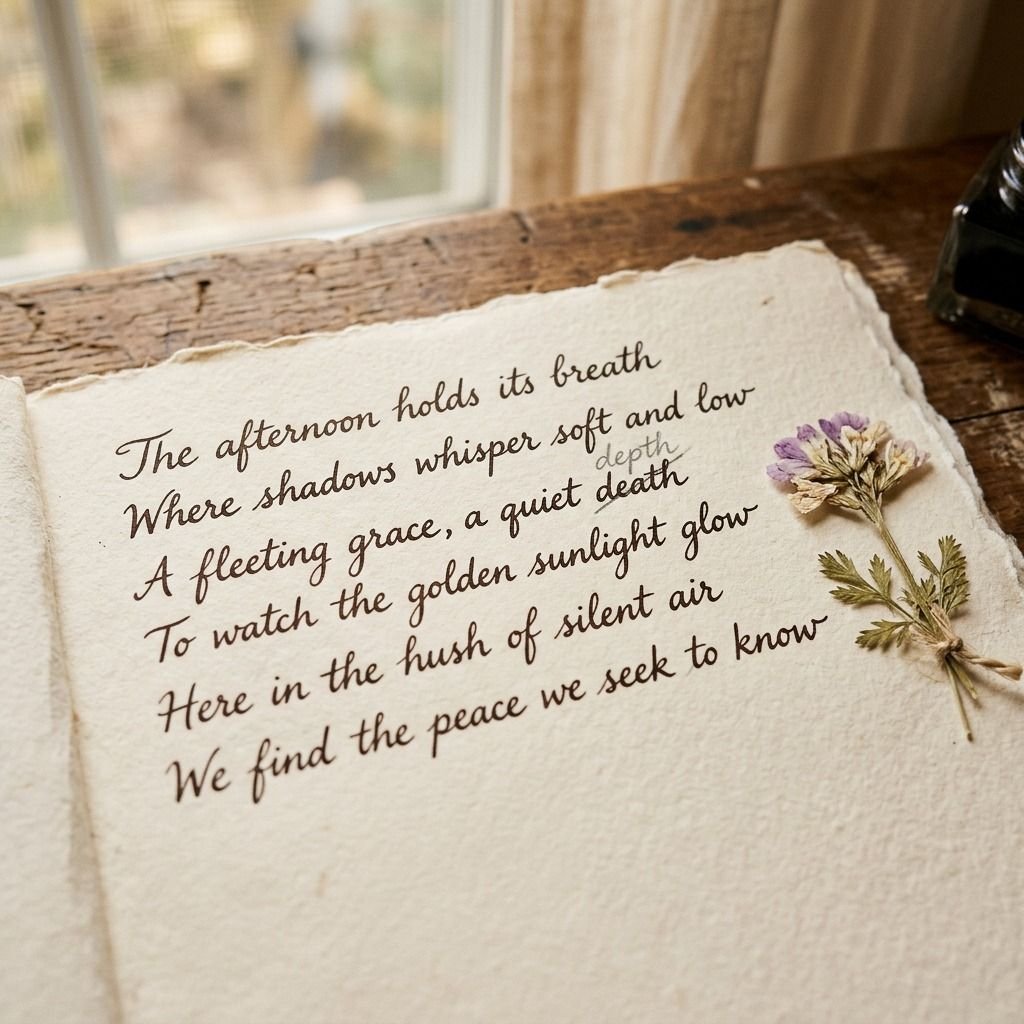 The afternoon holds its breath
Where shadows whisper soft and low
depth
A fleeting grace, a quiet death
To watch the golden sunlight glow
Here in the hush of silent air
We find the peace we seek to know